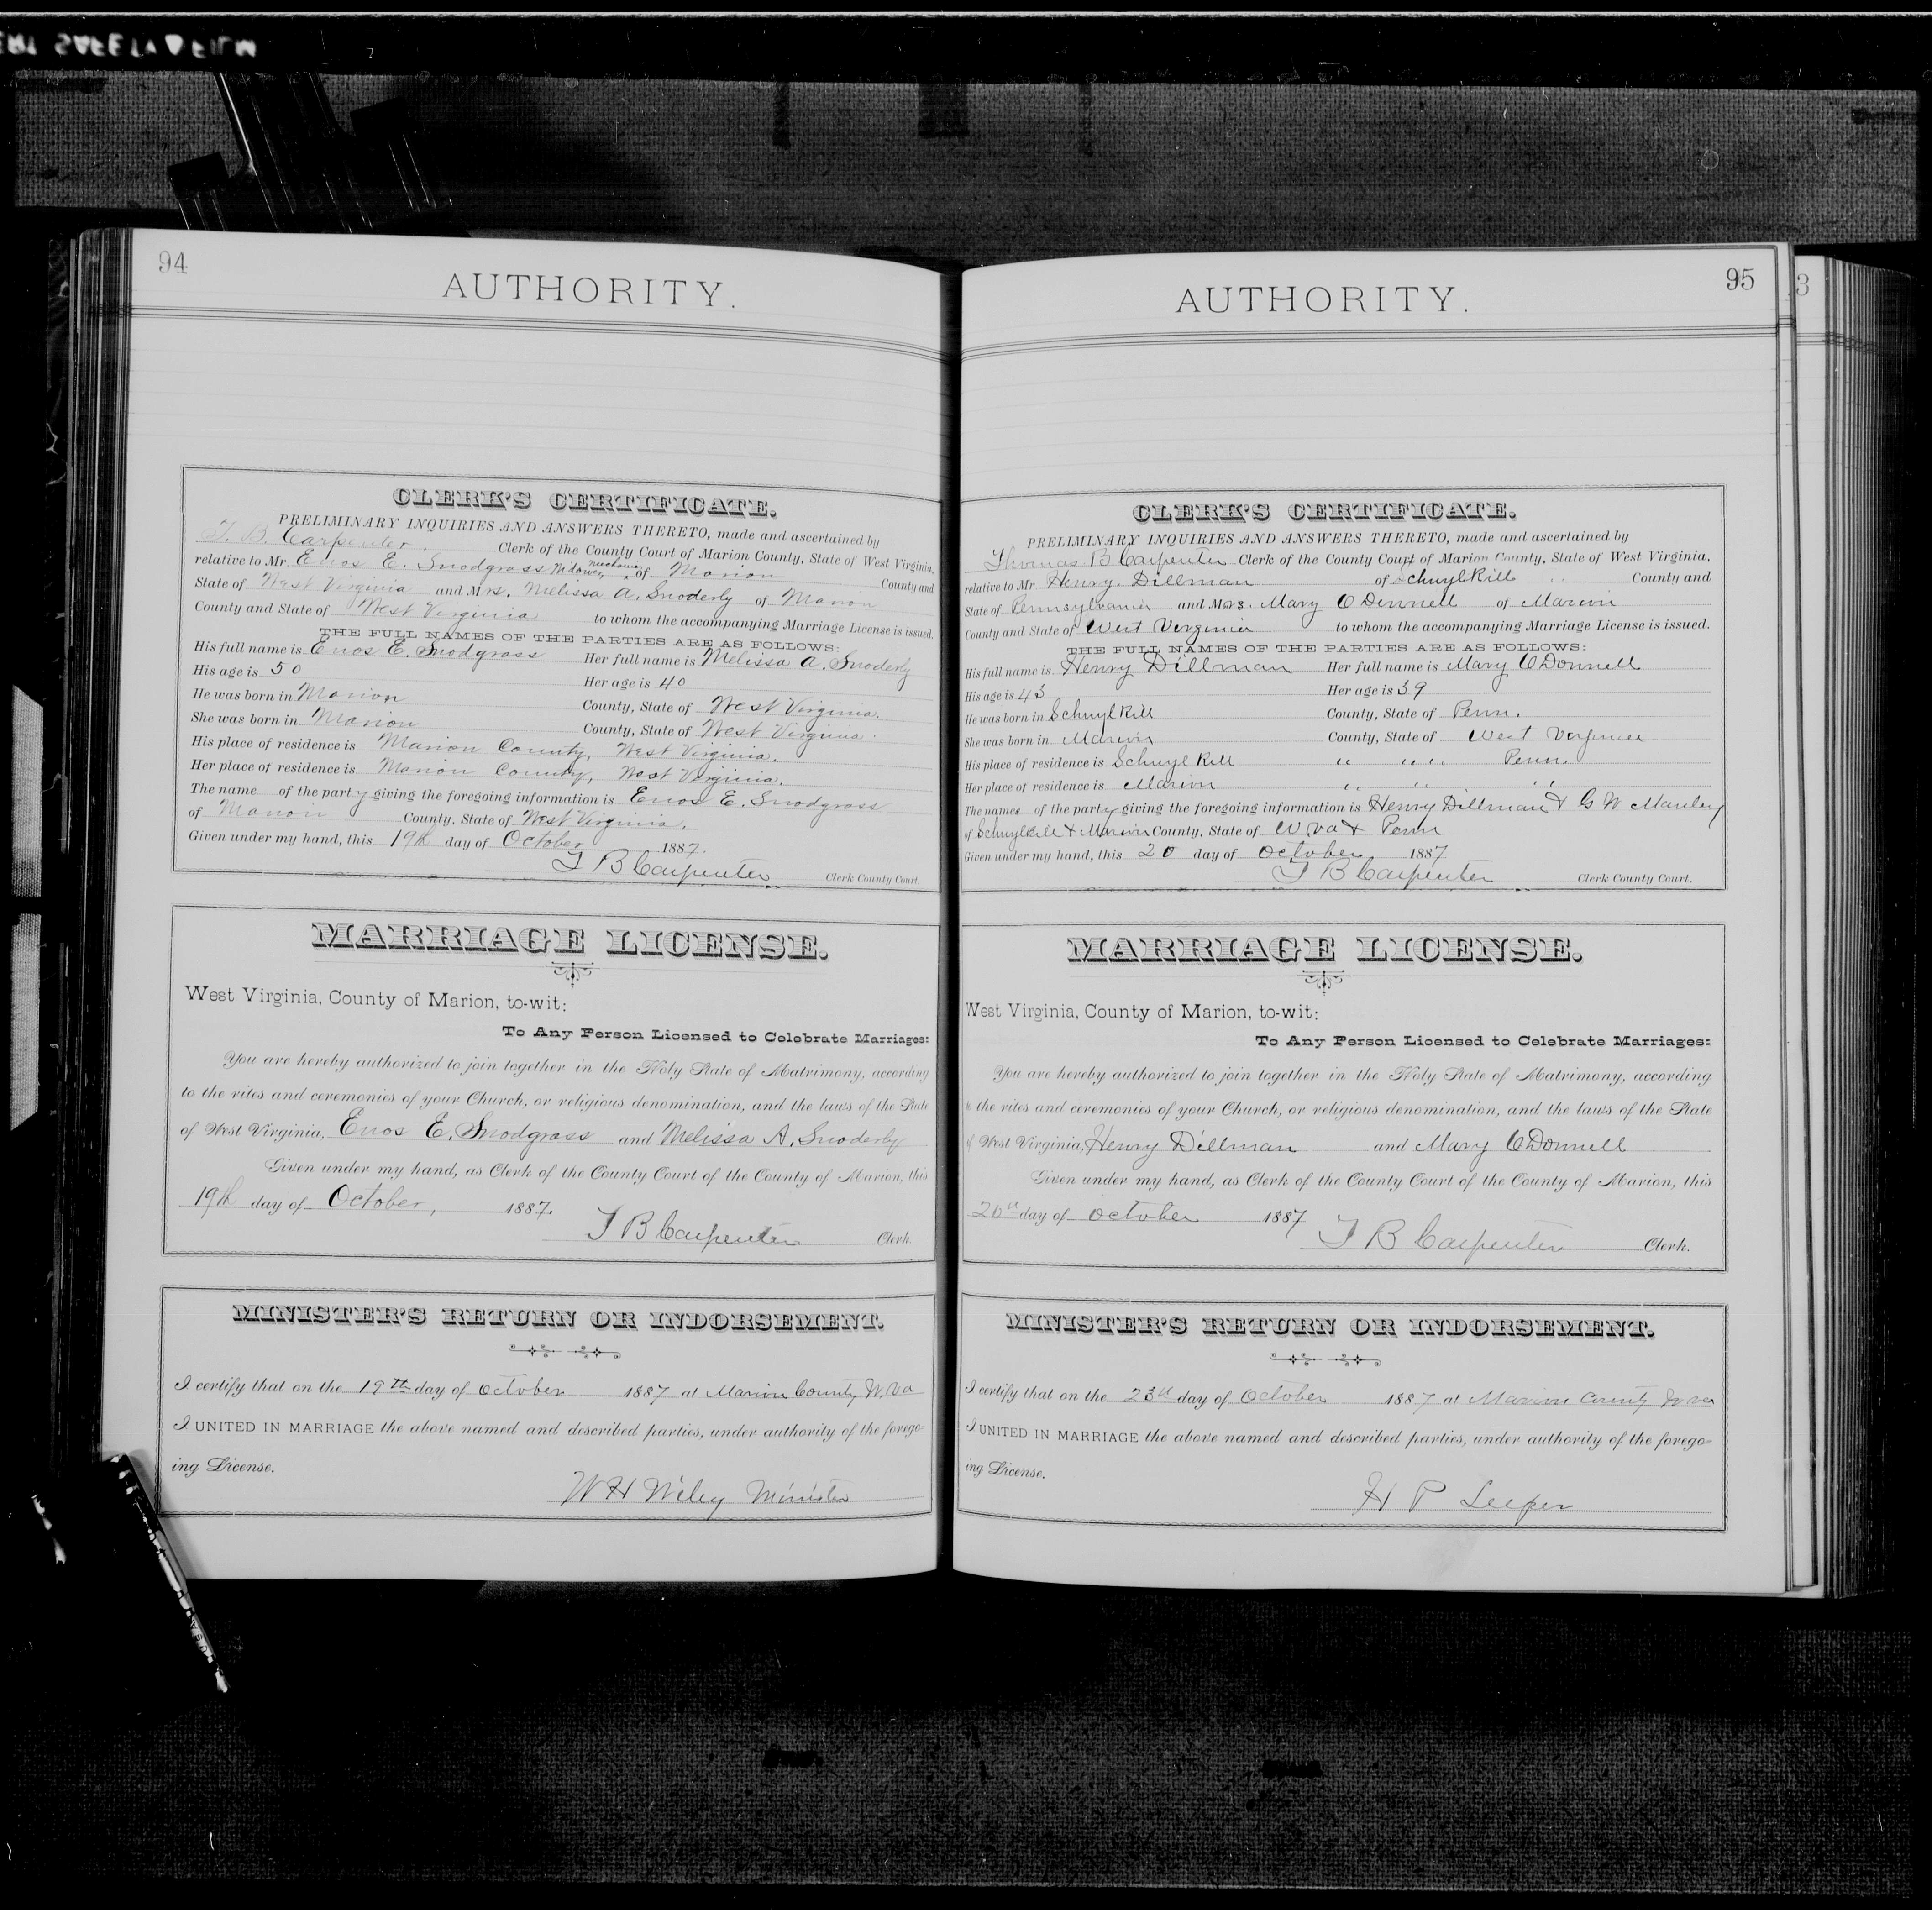 94
AUTHORITY.
CLERK'S CERTIFICATE.
PRELIMINARY INQUIRIES AND ANSWERS THERETO, made and ascertained by
T. B. Carpenter Clerk of the County Court of Marion County, State of West Virginia,
relative to Mr. Enos E. Snodgrass Widower, mechanic, of Marion County and
State of West Virginia and Mrs. Melissa A. Snoderly of Marion
County and State of West Virginia to whom the accompanying Marriage License is issued.
THE FULL NAMES OF THE PARTIES ARE AS FOLLOWS:
His full name is Enos E. Snodgrass Her full name is Melissa A. Snoderly
His age is 50 Her age is 40
He was born in Marion County, State of West Virginia.
She was born in Marion County, State of West Virginia.
His place of residence is Marion County, West Virginia.
Her place of residence is Marion County, West Virginia.
The name of the party giving the foregoing information is Enos E. Snodgrass
of Marion County, State of West Virginia.
Given under my hand, this 19th day of October 1887.
T B Carpenter Clerk County Court.
MARRIAGE LICENSE.
West Virginia, County of Marion, to-wit:
To Any Person Licensed to Celebrate Marriages:
You are hereby authorized to join together in the Holy State of Matrimony, according
to the rites and ceremonies of your Church, or religious denomination, and the laws of the State
of West Virginia, Enos E. Snodgrass and Melissa A. Snoderly
Given under my hand, as Clerk of the County Court of the County of Marion, this
19th day of October, 1887.
T B Carpenter Clerk.
MINISTER'S RETURN OR INDORSEMENT.
I certify that on the 19th day of October 1887 at Marion County W. Va
I UNITED IN MARRIAGE the above named and described parties, under authority of the forego-
ing License.
W H Wiley Minister
95
AUTHORITY.
CLERK'S CERTIFICATE.
PRELIMINARY INQUIRIES AND ANSWERS THERETO, made and ascertained by
Thomas B Carpenter Clerk of the County Court of Marion County, State of West Virginia,
relative to Mr Henry Dillman of Schuylkill County and
State of Pennsylvania and Mrs. Mary O Donnell of Marion
County and State of West Virginia to whom the accompanying Marriage License is issued.
THE FULL NAMES OF THE PARTIES ARE AS FOLLOWS:
His full name is Henry Dillman Her full name is Mary O Donnell
His age is 43 Her age is 39
He was born in Schuylkill County, State of Penn.
She was born in Marion County, State of West Virginia
His place of residence is Schuylkill " " " Penn.
Her place of residence is Marion " " " "
The names of the party giving the foregoing information is Henry Dillman & G W Manley
of Schuylkill & Marion County, State of W Va & Penn
Given under my hand, this 20 day of October 1887
T B Carpenter Clerk County Court.
MARRIAGE LICENSE.
West Virginia, County of Marion, to-wit:
To Any Person Licensed to Celebrate Marriages:
You are hereby authorized to join together in the Holy State of Matrimony, according
to the rites and ceremonies of your Church, or religious denomination, and the laws of the State
of West Virginia, Henry Dillman and Mary O Donnell
Given under my hand, as Clerk of the County Court of the County of Marion, this
20th day of October 1887
T B Carpenter Clerk.
MINISTER'S RETURN OR INDORSEMENT.
I certify that on the 23d day of October 1887 at Marion County W Va
I UNITED IN MARRIAGE the above named and described parties, under authority of the forego-
ing License.
H P Leeper
3